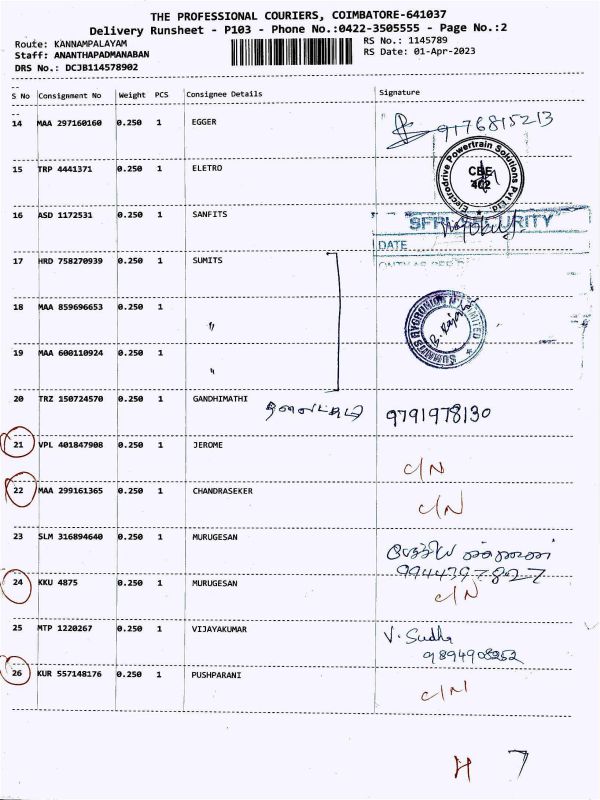 THE PROFESSIONAL COURIERS, COIMBATORE-641037
Delivery Runsheet - P103 - Phone No.:0422-3505555 - Page No.:2
Route: KANNAMPALAYAM RS No.: 1145789
Staff: ANANTHAPADMANABAN RS Date: 01-Apr-2023
DRS No.: DCJB114578902
S No Consignment No Weight PCS Consignee Details Signature
14 MAA 297160160 0.250 1 EGGER 9176815213
15 TRP 4441371 0.250 1 ELETRO
Electrodrive Powertrain Solutions Pvt Ltd
CBE
402
16 ASD 1172531 0.250 1 SANFITS
DATE
17 HRD 758270939 0.250 1 SUMITS
18 MAA 859696653 0.250 1 "
19 MAA 600110924 0.250 1 "
20 TRZ 150724570 0.250 1 GANDHIMATHI 9791978130
21 VPL 401847908 0.250 1 JEROME C/N
22 MAA 299161365 0.250 1 CHANDRASEKER C/N
23 SLM 316894640 0.250 1 MURUGESAN
9944397827
24 KKU 4875 0.250 1 MURUGESAN C/N
25 MTP 1220267 0.250 1 VIJAYAKUMAR V. Sudha
9894908252
26 KUR 557148176 0.250 1 PUSHPARANI C/N
H 7